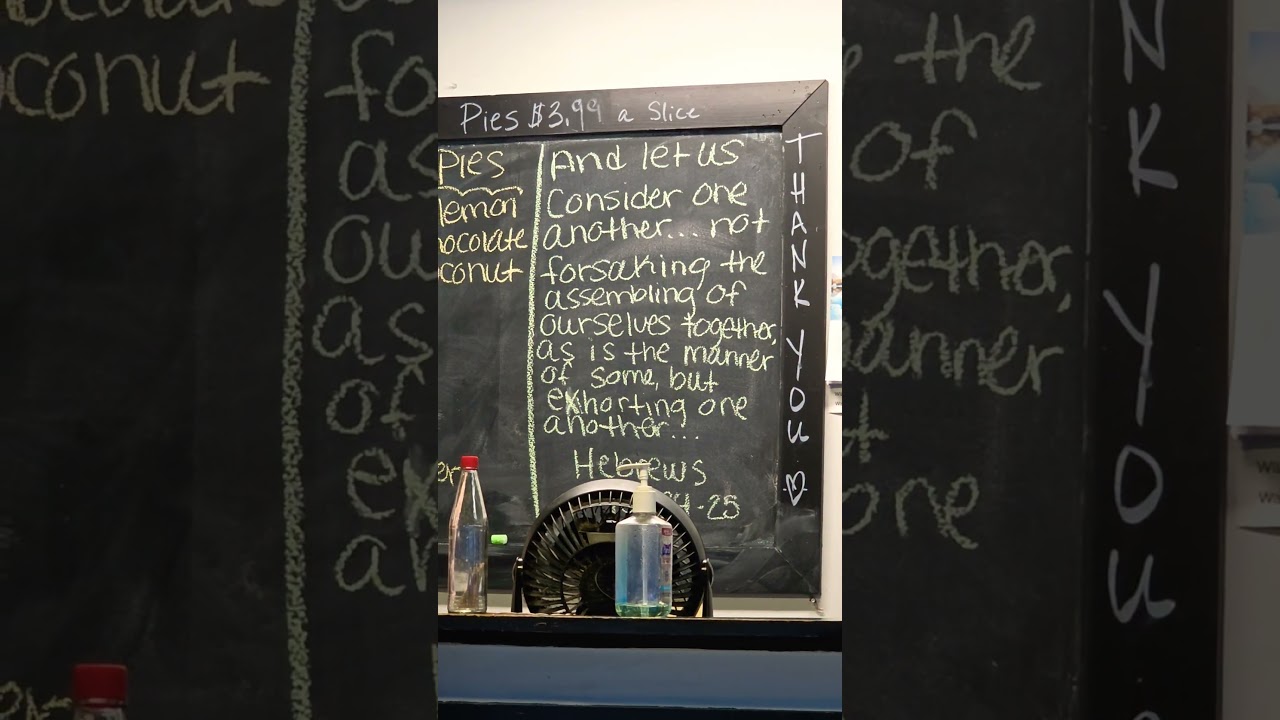 Pies $3.99 a Slice
Pies
lemon
hocolate
conut
And let us
Consider one
another... not
forsaking the
assembling of
ourselves together,
as is the manner
of some, but
exhorting one
another...
Hebrews
24-25
THANK YOU